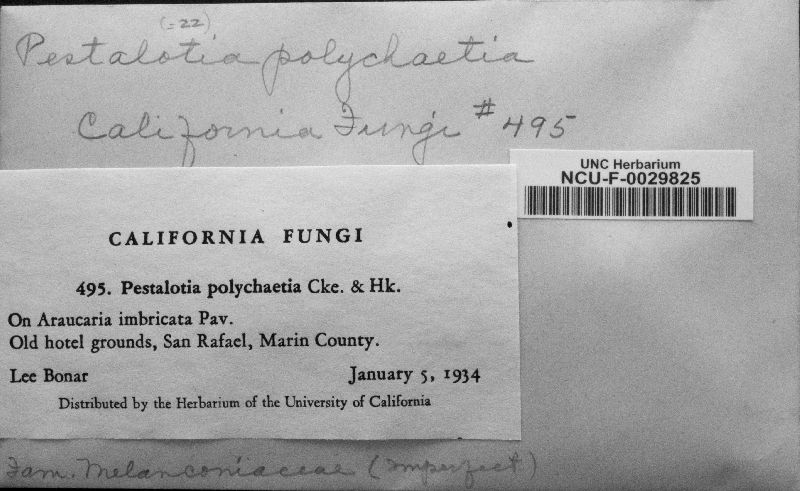 (=22)
Pestalotia polychaetia
California Fungi #495
UNC Herbarium
NCU-F-0029825
CALIFORNIA FUNGI
495. Pestalotia polychaetia Cke. & Hk.
On Araucaria imbricata Pav.
Old hotel grounds, San Rafael, Marin County.
Lee Bonar January 5, 1934
Distributed by the Herbarium of the University of California
Fam. Melanconiaceae (Imperfect)